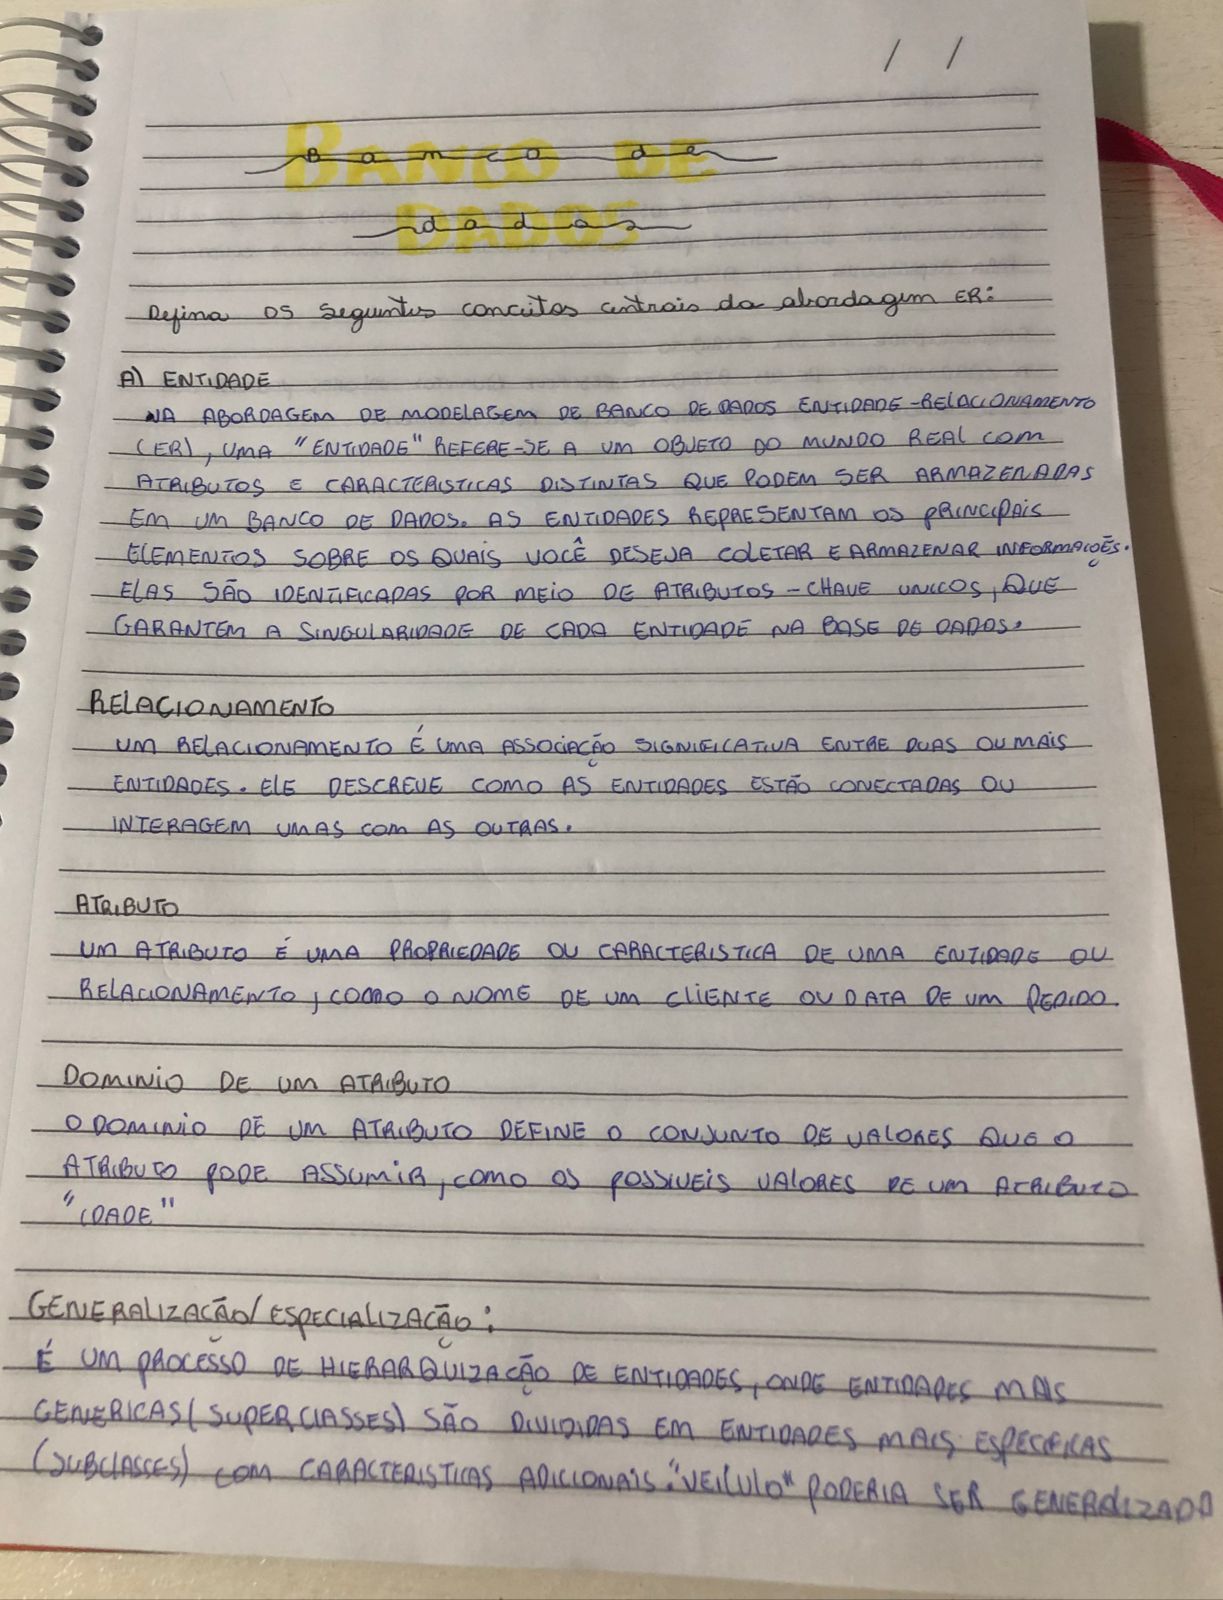 / /
Banco de
dados
Defina os seguintes conceitos centrais da abordagem ER:
A) ENTIDADE
NA ABORDAGEM DE MODELAGEM DE BANCO DE DADOS ENTIDADE-RELACIONAMENTO
(ER), UMA "ENTIDADE" REFERE-SE A UM OBJETO DO MUNDO REAL COM
ATRIBUTOS E CARACTERISTICAS DISTINTAS QUE PODEM SER ARMAZENADAS
EM UM BANCO DE DADOS. AS ENTIDADES REPRESENTAM OS PRINCIPAIS
ELEMENTOS SOBRE OS QUAIS VOCÊ DESEJA COLETAR E ARMAZENAR INFORMAÇÕES.
ELAS SÃO IDENTIFICADAS POR MEIO DE ATRIBUTOS-CHAVE UNICOS, QUE
GARANTEM A SINGULARIDADE DE CADA ENTIDADE NA BASE DE DADOS.
RELACIONAMENTO
UM RELACIONAMENTO É UMA ASSOCIAÇÃO SIGNIFICATIVA ENTRE DUAS OU MAIS
ENTIDADES. ELE DESCREVE COMO AS ENTIDADES ESTÃO CONECTADAS OU
INTERAGEM UMAS COM AS OUTRAS.
ATRIBUTO
UM ATRIBUTO É UMA PROPRIEDADE OU CARACTERISTICA DE UMA ENTIDADE OU
RELACIONAMENTO, COMO O NOME DE UM CLIENTE OU DATA DE UM PEDIDO.
DOMINIO DE UM ATRIBUTO
O DOMINIO DE UM ATRIBUTO DEFINE O CONJUNTO DE VALORES QUE O
ATRIBUTO PODE ASSUMIR, COMO OS POSSIVEIS VALORES DE UM ATRIBUTO
"IDADE"
GENERALIZAÇÃO/ESPECIALIZAÇÃO:
É UM PROCESSO DE HIERARQUIZAÇÃO DE ENTIDADES, ONDE ENTIDADES MAIS
GENERICAS (SUPERCLASSES) SÃO DIVIDIDAS EM ENTIDADES MAIS ESPECIFICAS
(SUBCLASSES) COM CARACTERISTICAS ADICIONAIS. "VEICULO" PODERIA SER GENERALIZADO